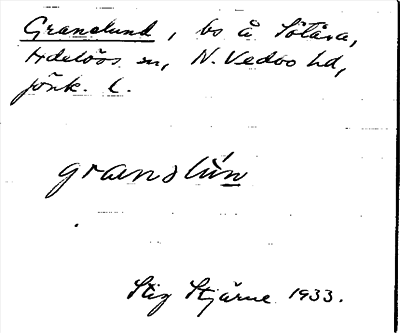 Granslund, bo å Sötåsa,
Adelövs sn, N. Vedbo hd,
jönk. l.
granslùn
Stig Stjärne 1933.